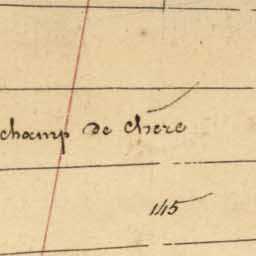 champ de chère
145